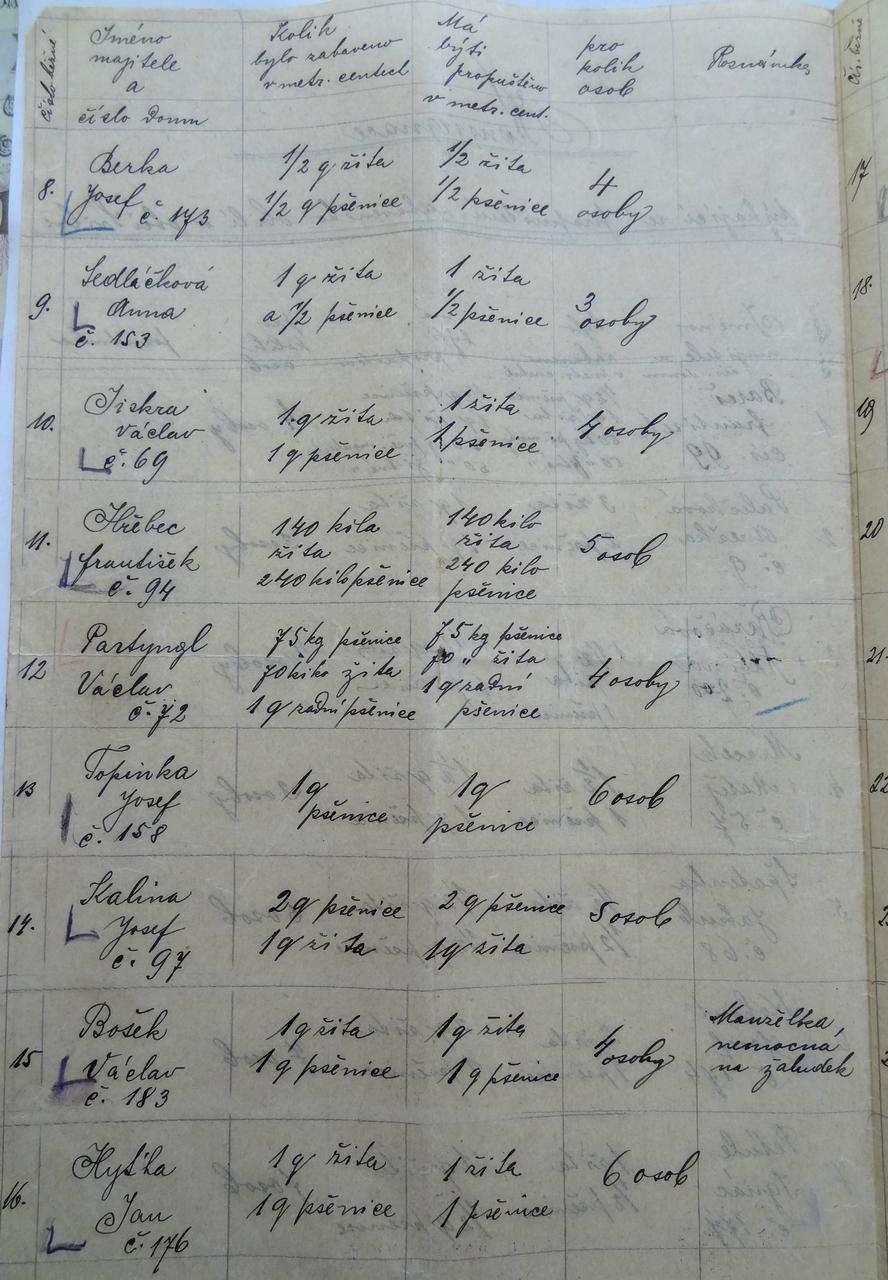 číslo běžné
Jméno
majitele
a
číslo domu
Kolik
bylo zabaveno
v metr. centech
Má
býti
propuštěno
v metr. cent.
pro
kolik
osob
Poznámka
8.
Berka
Josef č. 173
1/2 q žita
1/2 q pšenice
1/2 žita
1/2 pšenice
4
osoby
9.
Sedláčková
Anna
č. 153
1 q žita
a 1/2 pšenice
1 žita
1/2 pšenice
3
osoby
10.
Jiskra
Václav
č. 69
1 q žita
1 q pšenice
1 žita
1 pšenice
4 osoby
11.
Hřebec
František
č. 94
140 kila
žita
240 kilo pšenice
140 kilo
žita
240 kilo
pšenice
5 osob
12
Partyngl
Václav
č. 72
75 kg pšenice
70 kilo žita
1 q zadní pšenice
75 kg pšenice
70 " žita
1 q zadní
pšenice
4 osoby
13
Topinka
Josef
č. 158
1 q
pšenice
1 q
pšenice
6 osob
14.
Kalina
Josef
č. 97
2 q pšenice
1 q žita
2 q pšenice
1 q žita
5 osob
15
Bošek
Václav
č. 183
1 q žita
1 q pšenice
1 q žita
1 q pšenice
4
osoby
Manželka
nemocná
na žaludek
16.
Hyťha
Jan
č. 176
1 q žita
1 q pšenice
1 žita
1 pšenice
6 osob
Čís. běžné
17
18.
19
20
21.
22